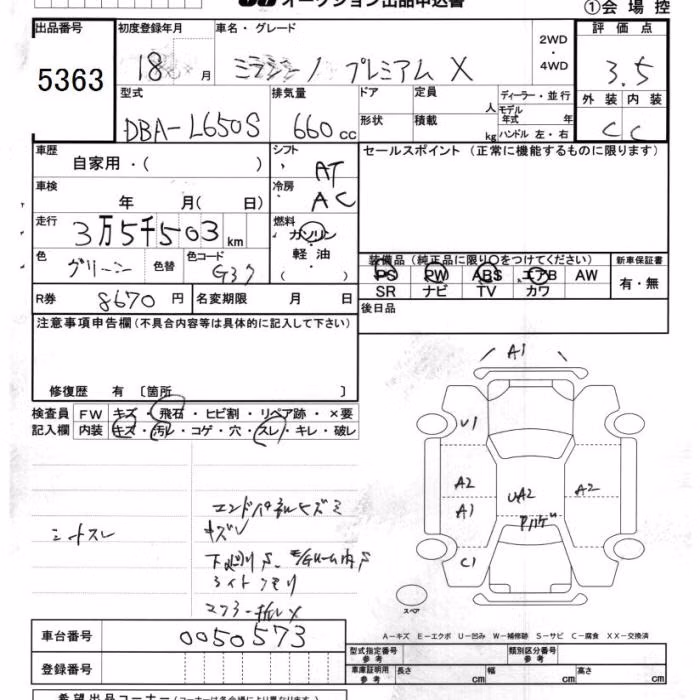 オークション出品申込書 ①会場控
出品番号 初度登録年月 車名・グレード 2WD・4WD 評価点
5363 18 月 ミラジーノ プレミアム X 3.5
型式 排気量 ドア 定員 人 ディーラー・並行 外装 内装
DBA-L650S 660cc 形状 積載 kg モデル年式 年 ハンドル 左・右 C C
車歴 自家用・( ) シフト AT セールスポイント (正常に機能するものに限ります)
車検 年 月( 日) 冷房 AC
走行 3万5千503km 燃料 ガソリン・軽油 ( )
色 グリーン 色替 色コード G37
装備品 (純正品に限り○をつけてください) 新車保証書
PS PW ABS エアB AW 有・無
SR ナビ TV カワ
R券 8670円 名変期限 月 日 後日品
注意事項申告欄 (不具合内容等は具体的に記入して下さい)
修復歴 有 〔箇所 〕
検査員 FW キズ・飛石・ヒビ割・リペア跡・×要
記入欄 内装 キズ・汚レ・コゲ・穴・スレ・キレ・破レ
A1
U1
A2 UA2 A2
A1
C1
エンドパネルキズミ
シートスレ キズ
スペア
車台番号 0050573
A−キズ E−エクボ U−凹み W−補修跡 S−サビ C−腐食 XX−交換済
登録番号
型式指定番号 参考 類別区分番号 参考
車庫証明用 参考 長さ cm 幅 cm 高さ cm
希望出品コーナー (コーナーは各会場により異なります)